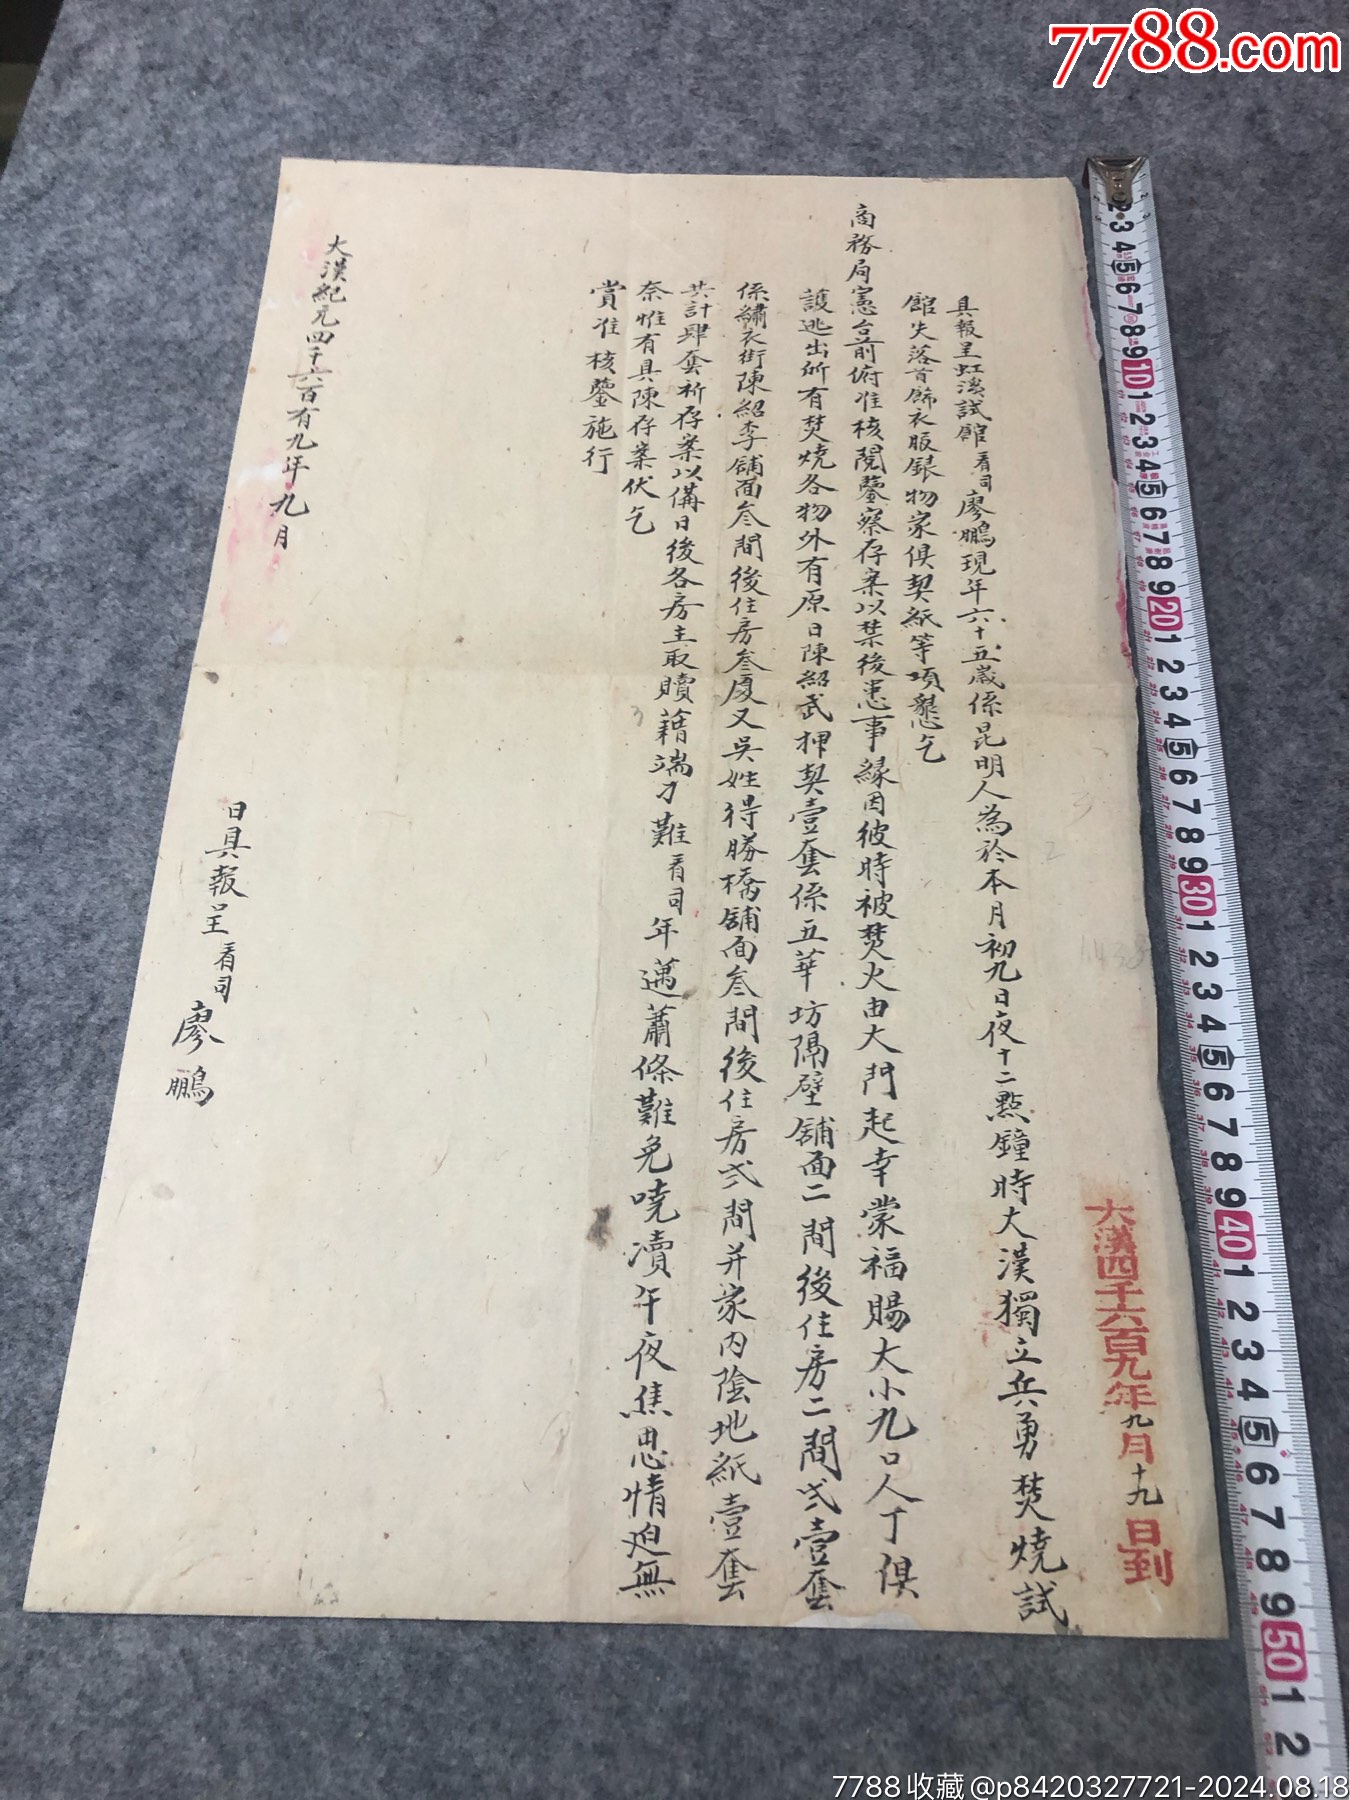 7788.com
大漢四千六百九年九月十九日到
具報呈虹溪試館看司廖鵬現年六十五歲係昆明人為於本月初九日夜十二點鐘時大漢獨立兵勇焚燒試
館失落首飾衣服銀物家俱契紙等項懇乞
商務局憲台前俯准核閱鑒察存案以禁後患事緣因彼時被焚火由大門起幸蒙福賜大小九口人丁俱
護逃出所有焚燒各物外有原日陳紹武押契壹套係五華坊隔壁舖面二間後住房二間弍壹套
係繡衣街陳紹李舖面叁間後住房叁廈又吳姓得勝橋舖面叁間後住房弍間并家內陰地紙壹套
共計肆套祈存案以備日後各房主取贖藉端刁難看司年邁蕭條難免哓瀆午夜焦思情迫無
奈惟有具陳存案伏乞
賞准核鑒施行
大漢紀元四千六百有九年九月
日具報呈看司廖鵬
7788收藏@p8420327721-2024.08.18